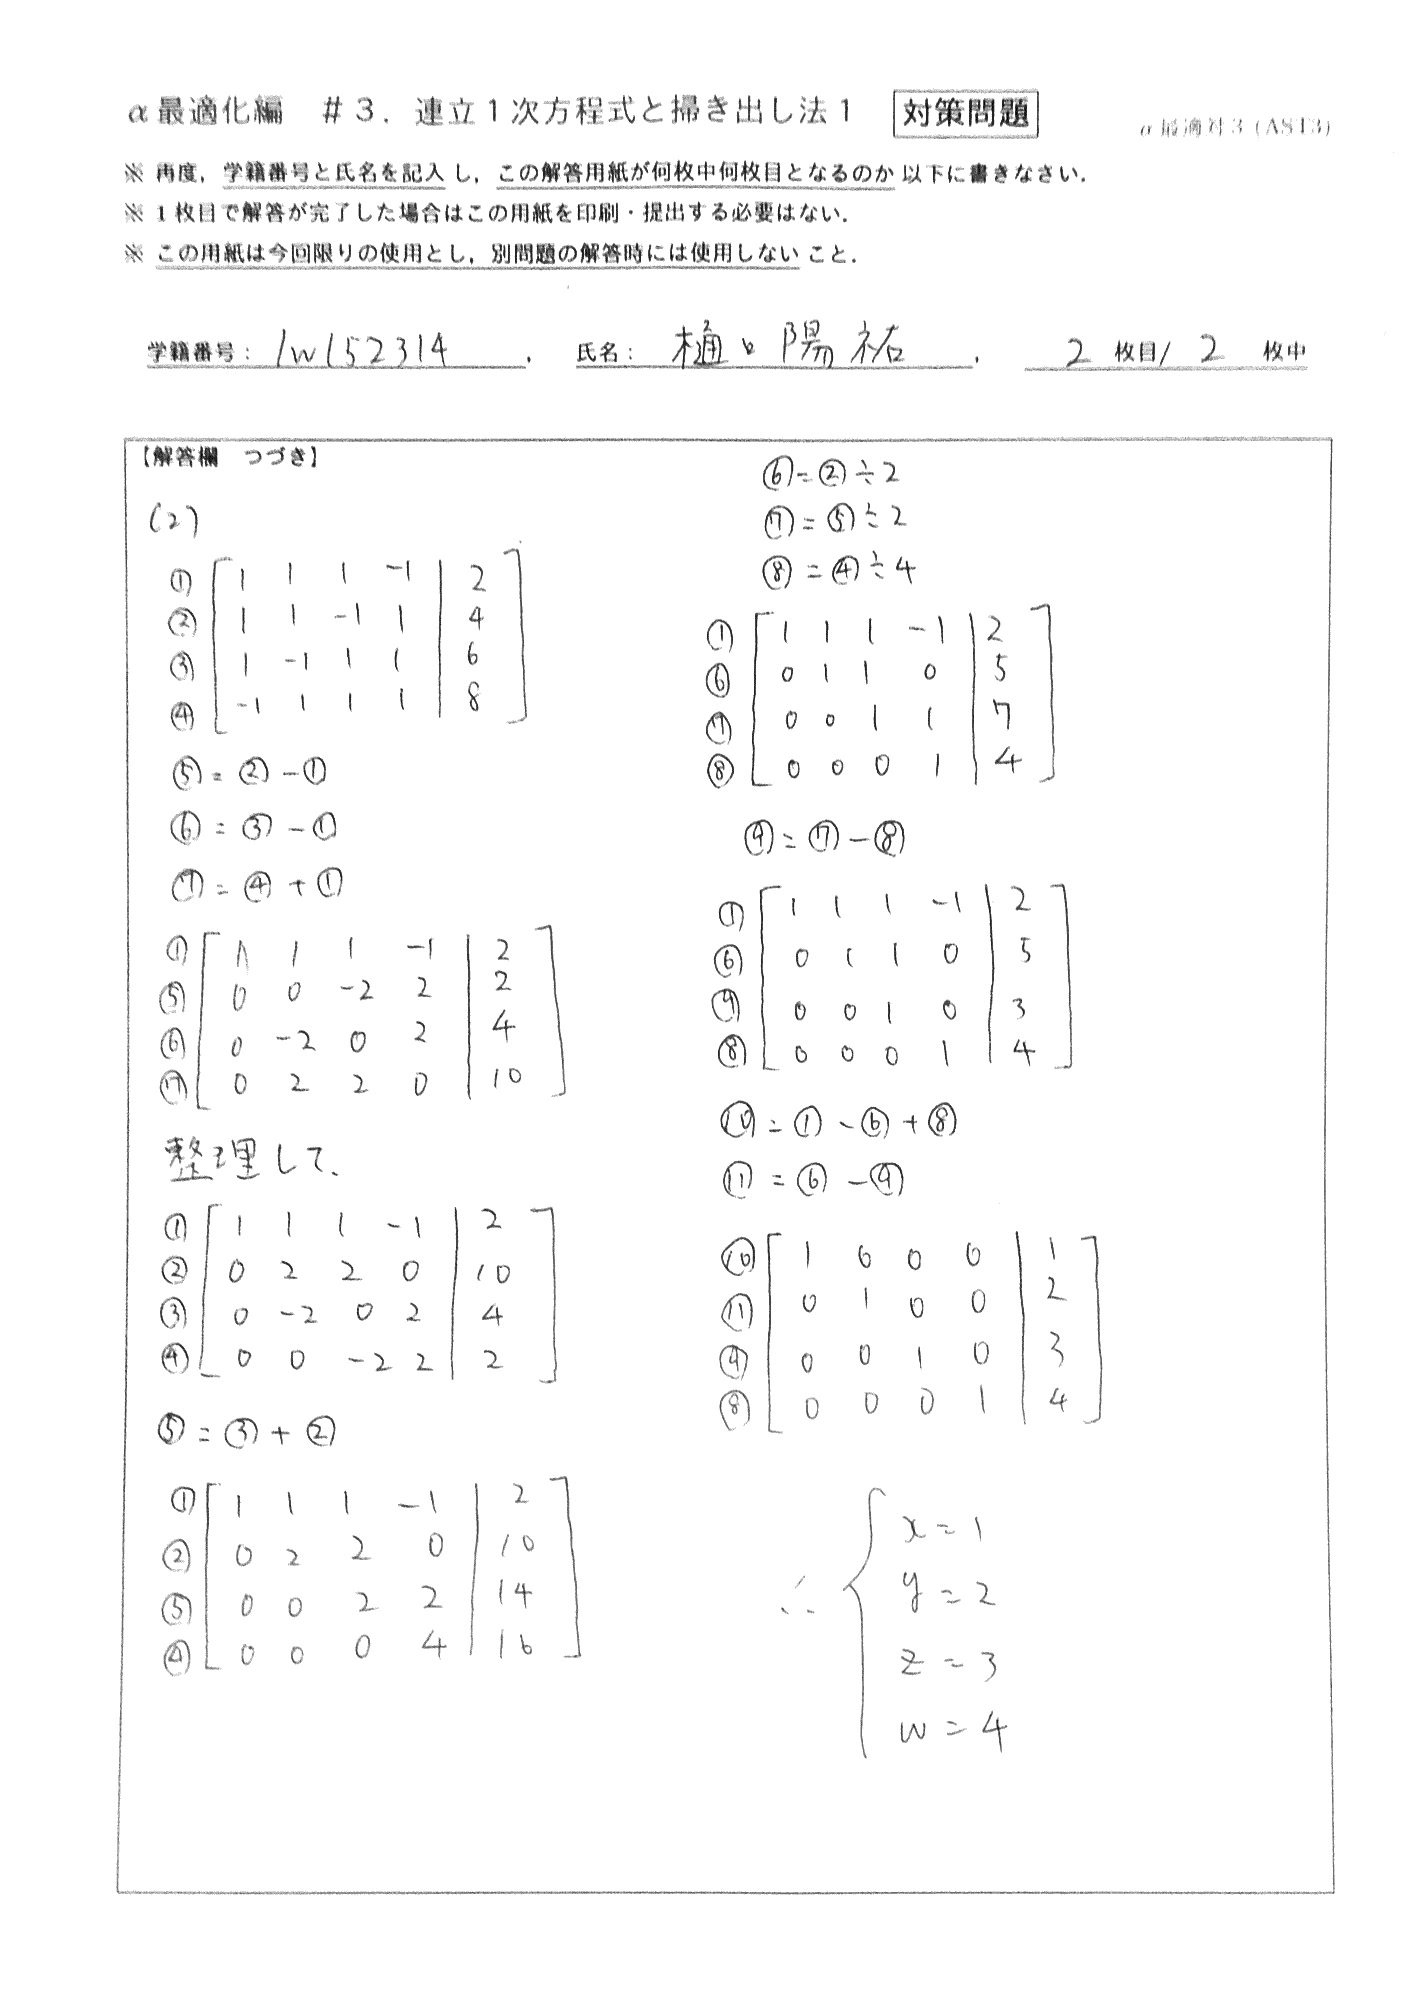 α最適化編　＃３．連立１次方程式と掃き出し法１　対策問題　α最適対３(AST3)
※ 再度，学籍番号と氏名を記入し，この解答用紙が何枚中何枚目となるのか以下に書きなさい．
※ １枚目で解答が完了した場合はこの用紙を印刷・提出する必要はない．
※ この用紙は今回限りの使用とし，別問題の解答時には使用しないこと．
学籍番号：1w152314．　氏名：樋口陽祐．　2 枚目/ 2 枚中
【解答欄　つづき】
(2)
① [ 1 1 1 -1 | 2 ]
② [ 1 1 -1 1 | 4 ]
③ [ 1 -1 1 1 | 6 ]
④ [ -1 1 1 1 | 8 ]
⑤ = ② - ①
⑥ = ③ - ①
⑦ = ④ + ①
① [ 1 1 1 -1 | 2 ]
⑤ [ 0 0 -2 2 | 2 ]
⑥ [ 0 -2 0 2 | 4 ]
⑦ [ 0 2 2 0 | 10 ]
整理して、
① [ 1 1 1 -1 | 2 ]
② [ 0 2 2 0 | 10 ]
③ [ 0 -2 0 2 | 4 ]
④ [ 0 0 -2 2 | 2 ]
⑤ = ③ + ②
① [ 1 1 1 -1 | 2 ]
② [ 0 2 2 0 | 10 ]
⑤ [ 0 0 2 2 | 14 ]
④ [ 0 0 0 4 | 16 ]
⑥ = ② ÷ 2
⑦ = ⑤ ÷ 2
⑧ = ④ ÷ 4
① [ 1 1 1 -1 | 2 ]
⑥ [ 0 1 1 0 | 5 ]
⑦ [ 0 0 1 1 | 7 ]
⑧ [ 0 0 0 1 | 4 ]
⑨ = ⑦ - ⑧
① [ 1 1 1 -1 | 2 ]
⑥ [ 0 1 1 0 | 5 ]
⑨ [ 0 0 1 0 | 3 ]
⑧ [ 0 0 0 1 | 4 ]
⑩ = ① - ⑥ + ⑧
⑪ = ⑥ - ⑨
⑩ [ 1 0 0 0 | 1 ]
⑪ [ 0 1 0 0 | 2 ]
⑨ [ 0 0 1 0 | 3 ]
⑧ [ 0 0 0 1 | 4 ]
∴ { x = 1
y = 2
z = 3
w = 4